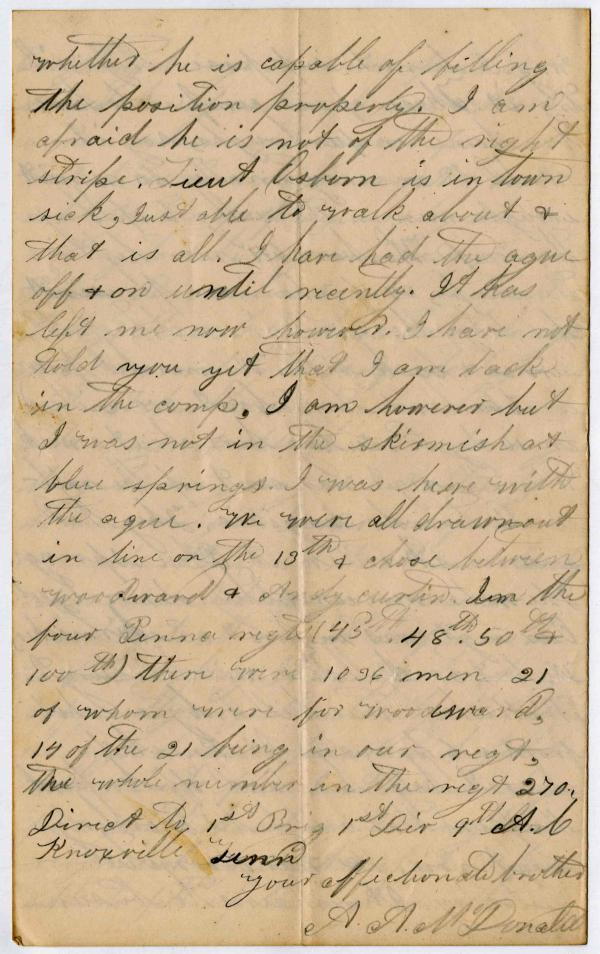 whether he is capable of filling
the position properly. I am
afraid he is not of the right
stripe. Lieut Osborn is in town
sick, Just able to walk about &
that is all. I have had the ague
off & on until recently. It has
left me now however. I have not
told you yet that I am back
in the comp. I am however but
I was not in the skirmish at
blue springs. I was here with
the ague. We were all drawn out
in line on the 13th & chose between
woodward & Andy curtin. In the
four Penna regts (45th. 48th. 50th &
100th) there were 1096 men 21
of whom were for woodward,
14 of the 21 being in our regt,
the whole number in the regt 270.
Direct to 1st Brig 1st Div 9th A.C
Knoxville Tenn
your affectionate brother
A. A. McDonald